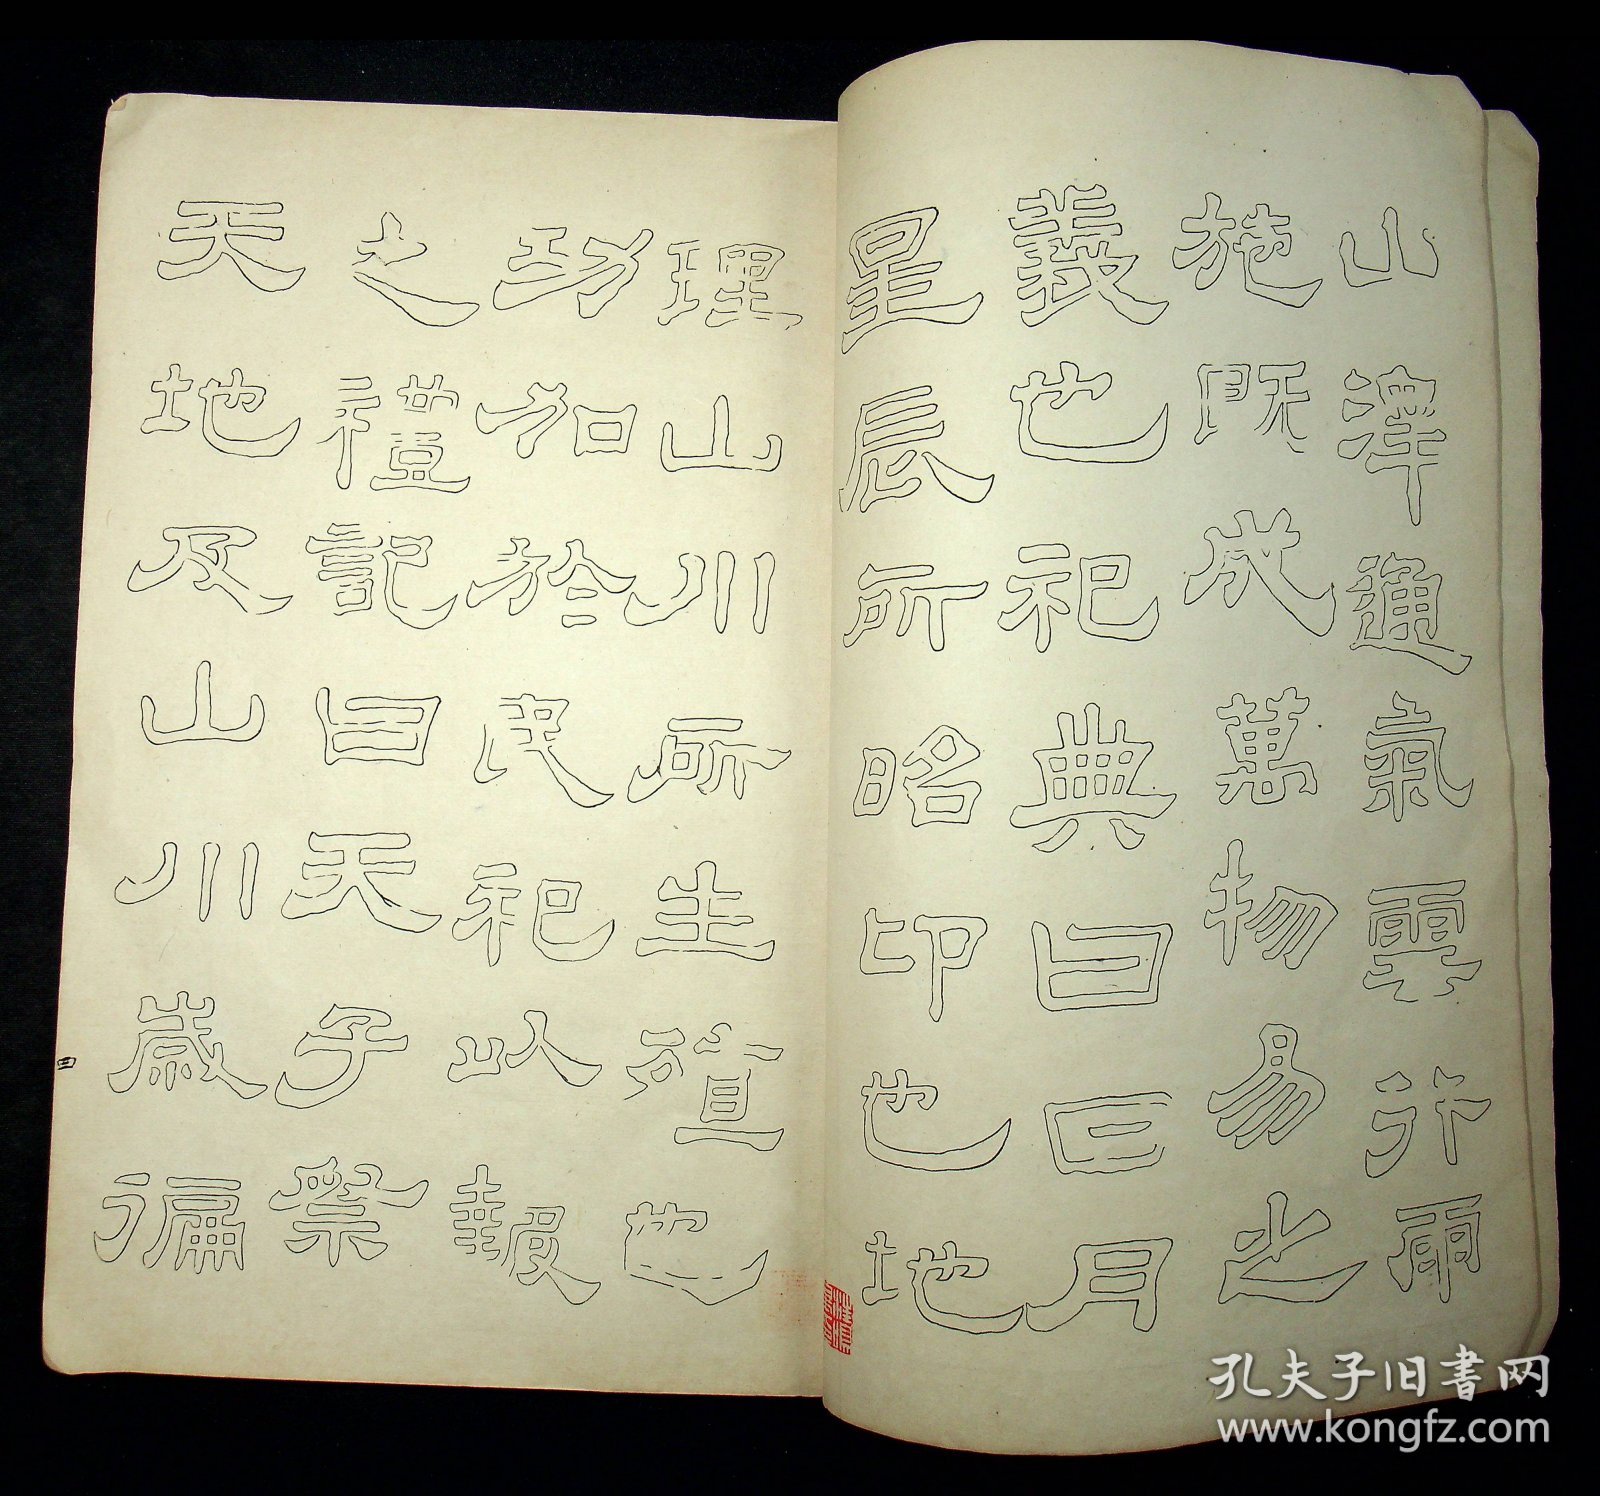 山澤通氣雲行雨
施既成萬物易之
義也祀典曰日月
星辰所昭卬也地
理山川所生殖也
功加於民祀以報
之禮記曰天子祭
天地及山川歲徧
四
孔夫子旧書网
www.kongfz.com